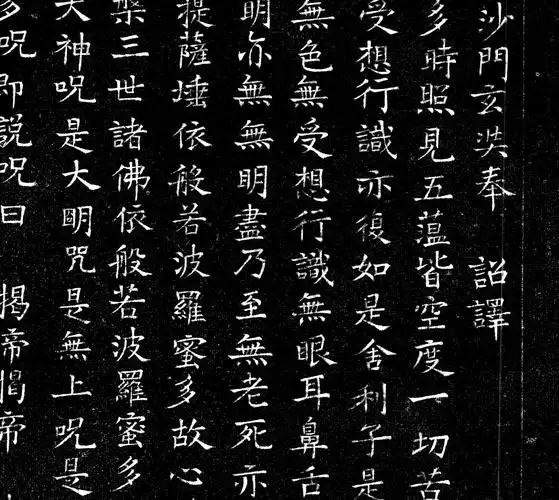 沙門玄奘奉 詔譯
多時照見五蕰皆空度一切苦
受想行識亦復如是舍利子是
無色無受想行識無眼耳鼻舌
明亦無無明盡乃至無老死亦
提薩埵依般若波羅蜜多故心
槃三世諸佛依般若波羅蜜多
大神呪是大明咒是無上呪是
多呪即説呪曰 揭帝揭帝